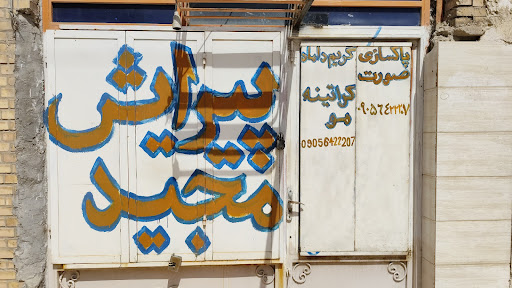 پیرایش
مجید
پاکسازی
صورت
گریم داماد
کراتینه
مو
۰۹۰۵۶۴۲۲۲۰۷
09056422207